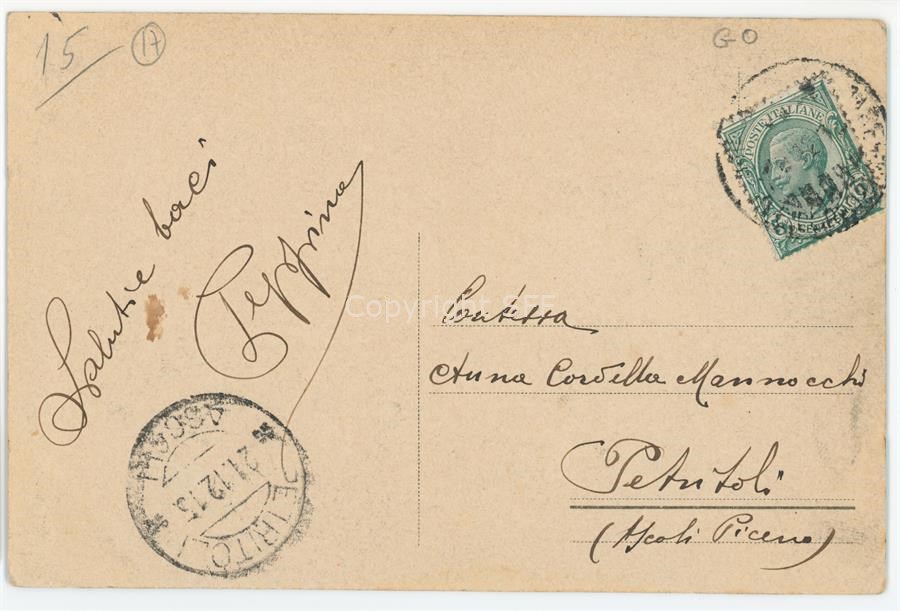 15
17
GO
POSTE ITALIANE
Saluti e baci
Peppina
Copyright SFF
Contessa
Anna Cordella Mannocchi
Petritoli
(Ascoli Piceno)
PETRITOLI
21.12.15